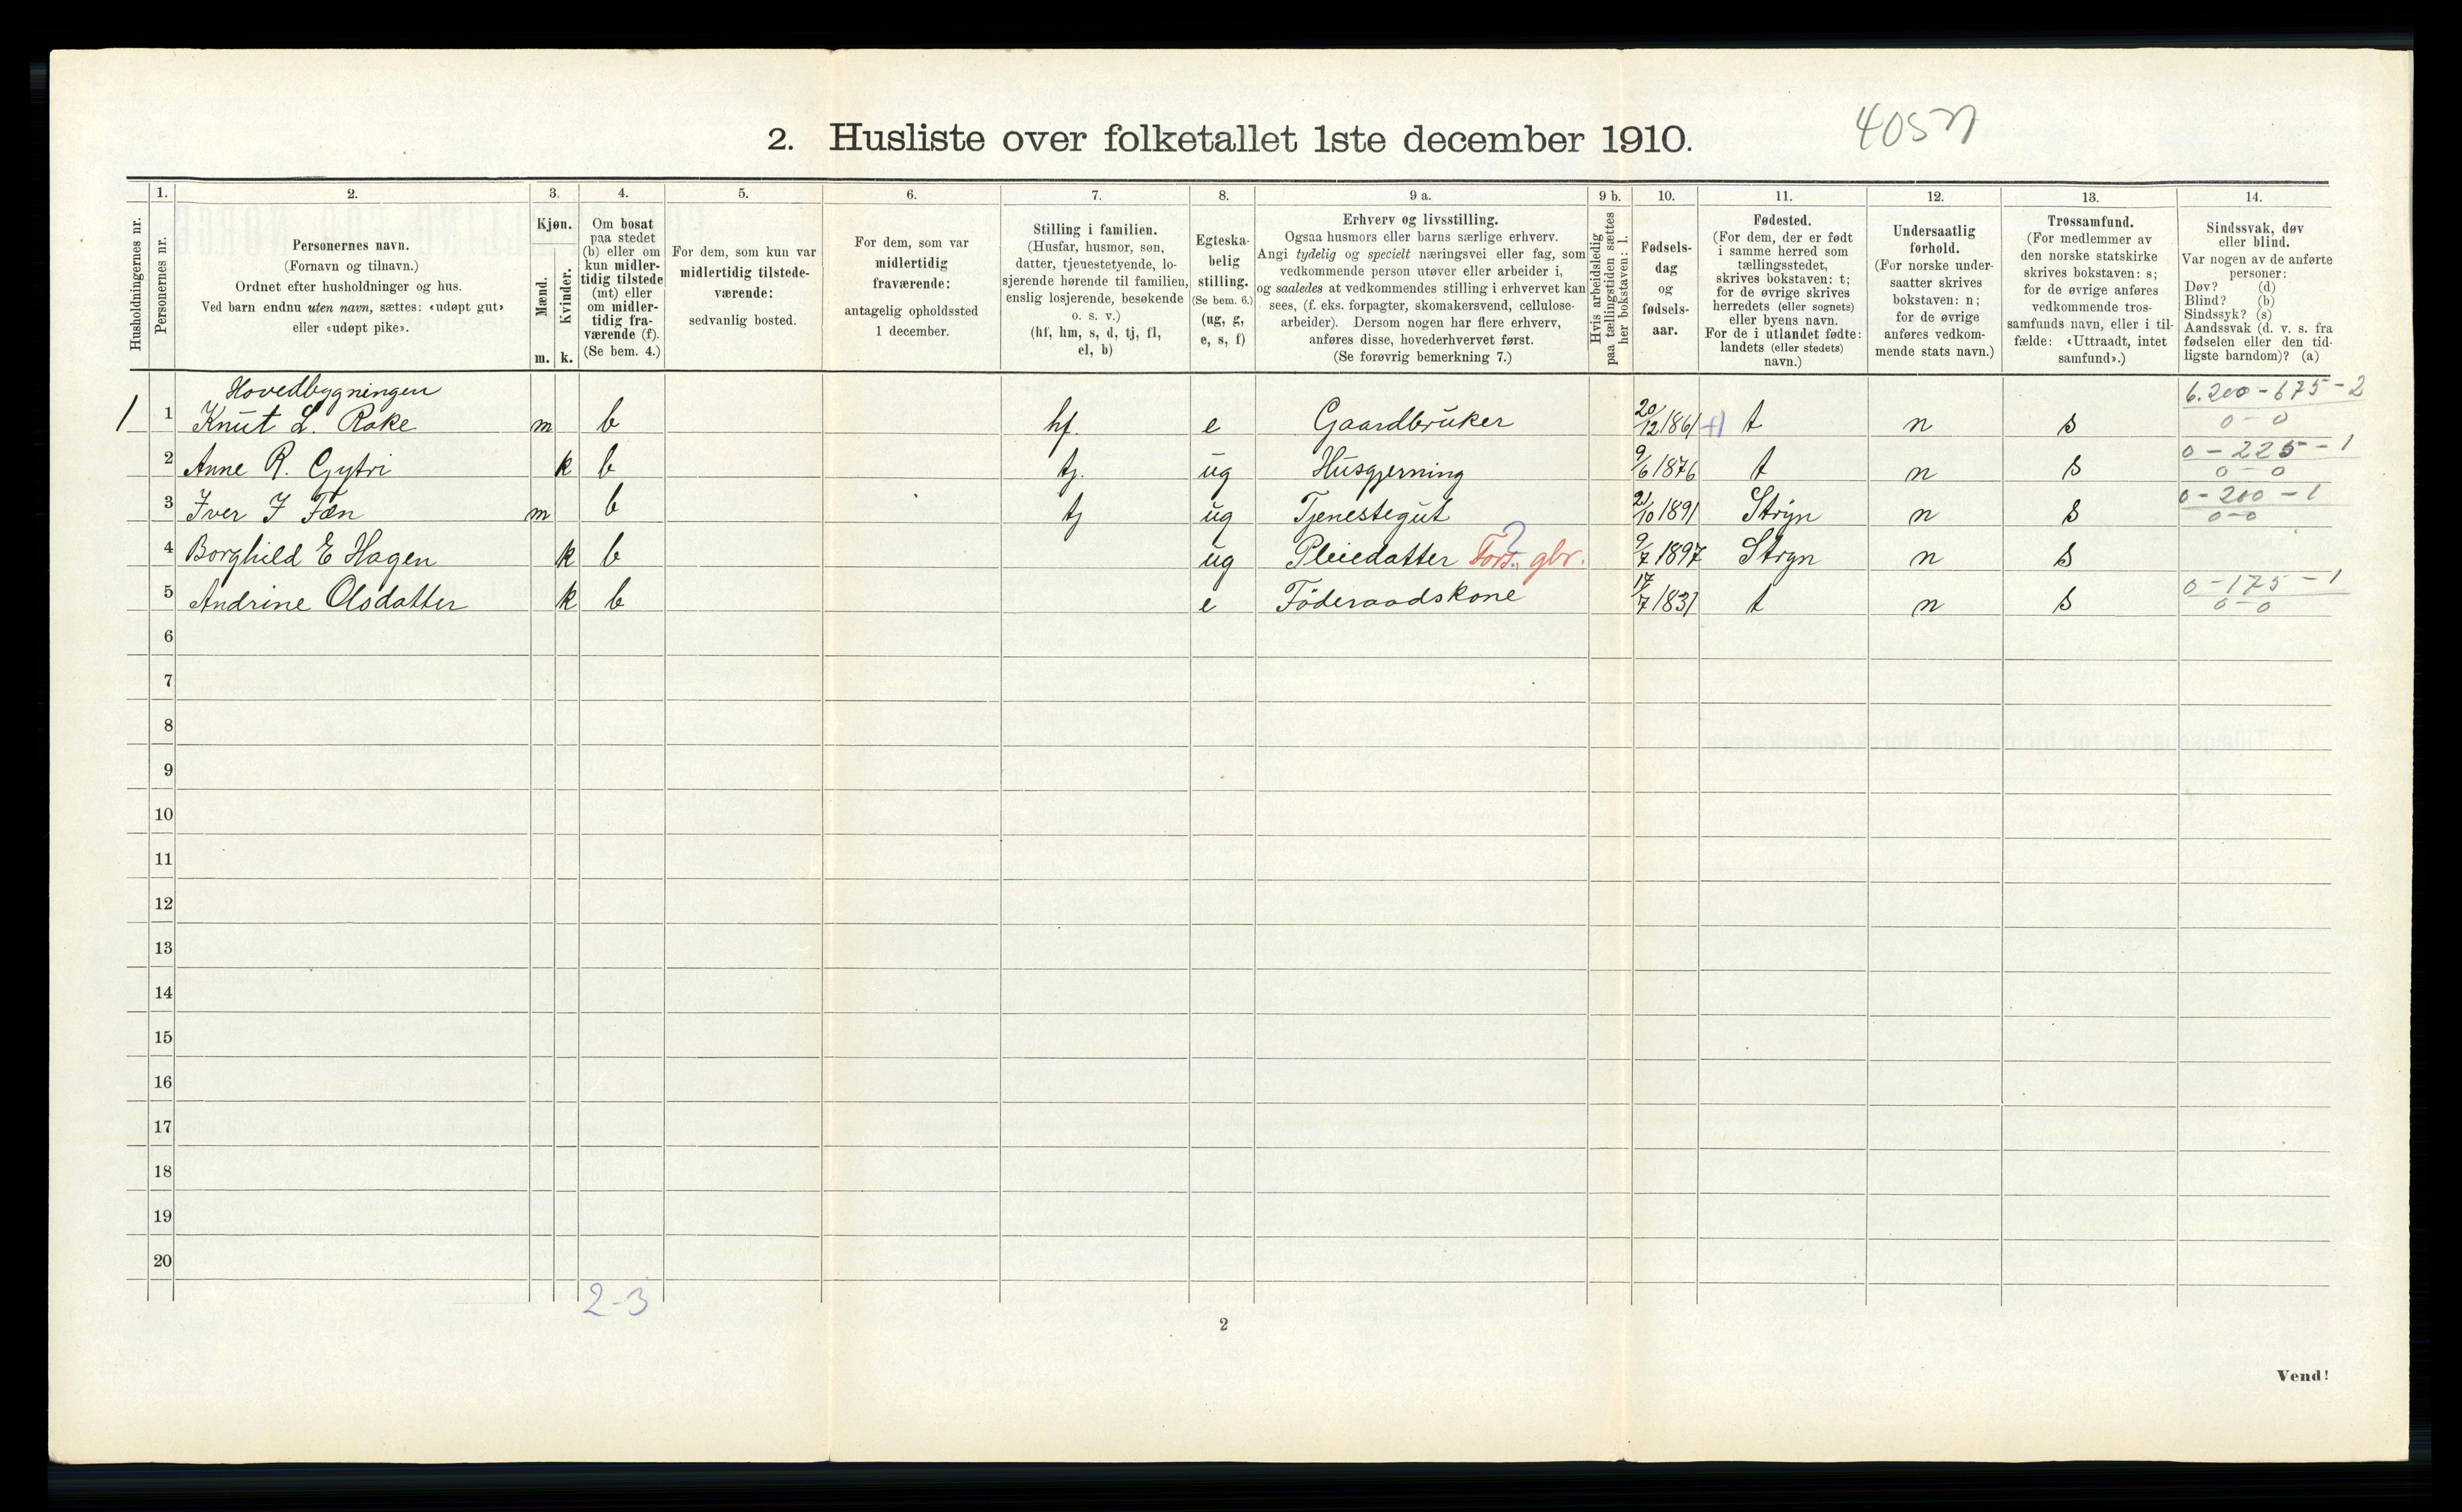 2. Husliste over folketallet 1ste december 1910.
405
1. 2. 3. 4. 5. 6. 7. 8. 9 a. 9 b. 10. 11. 12. 13. 14.
Husholdningernes nr.
Personernes nr.
Personernes navn.
(Fornavn og tilnavn.)
Ordnet efter husholdninger og hus.
Ved barn endnu uten navn, sættes: «udøpt gut»
eller «udøpt pike».
Kjøn.
Mænd.
Kvinder.
m. k.
Om bosat
paa stedet
(b) eller om
kun midler-
tidig tilstede
(mt) eller
om midler-
tidig fra-
værende (f).
(Se bem. 4.)
For dem, som kun var
midlertidig tilstede-
værende:
sedvanlig bosted.
For dem, som var
midlertidig
fraværende:
antagelig opholdssted
1 december.
Stilling i familien.
(Husfar, husmor, søn,
datter, tjenestetyende, lo-
sjerende hørende til familien,
enslig losjerende, besøkende
o. s. v.)
(hf, hm, s, d, tj, fl,
el, b)
Egteska-
belig
stilling.
(Se bem. 6.)
(ug, g,
e, s, f)
Erhverv og livsstilling.
Ogsaa husmors eller barns særlige erhverv.
Angi tydelig og specielt næringsvei eller fag, som
vedkommende person utøver eller arbeider i,
og saaledes at vedkommendes stilling i erhvervet kan
sees, (f. eks. forpagter, skomakersvend, cellulose-
arbeider). Dersom nogen har flere erhverv,
anføres disse, hovederhvervet først.
(Se forøvrig bemerkning 7.)
Hvis arbeidsledig
paa tællingstiden sættes
her bokstaven: l.
Fødsels-
dag
og
fødsels-
aar.
Fødested.
(For dem, der er født
i samme herred som
tællingsstedet,
skrives bokstaven: t;
for de øvrige skrives
herredets (eller sognets)
eller byens navn.
For de i utlandet fødte:
landets (eller stedets)
navn.)
Undersaatlig
forhold.
(For norske under-
saatter skrives
bokstaven: n;
for de øvrige
anføres vedkom-
mende stats navn.)
Trossamfund.
(For medlemmer av
den norske statskirke
skrives bokstaven: s;
for de øvrige anføres
vedkommende tros-
samfunds navn, eller i til-
fælde: «Uttraadt, intet
samfund».)
Sindssvak, døv
eller blind.
Var nogen av de anførte
personer:
Døv? (d)
Blind? (b)
Sindssyk? (s)
Aandssvak (d. v. s. fra
fødselen eller den tid-
ligste barndom)? (a)
Hovedbygningen 6.200-675-2
1 1 Knut L. Rake m b hf. e Gaardbruker 20/12 1861 t n s 0-0
0-225-1
2 Anne R. Gytri k b tj. ug Husgjerning 9/6 1876 t n s 0-0
0-200-1
3 Iver I Tæn m b tj ug Tjenestegut 21/10 1891 Stryn n s 0-0
4 Borghild E Hagen k b ug Pleiedatter Fors. gbr. ? 9/7 1897 Stryn n s
0-175-1
5 Andrine Olsdatter k b e Föderaadskone 17/7 1831 t n s 0-0
6
7
8
9
10
11
12
13
14
15
16
17
18
19
20
2-3
2
Vend!